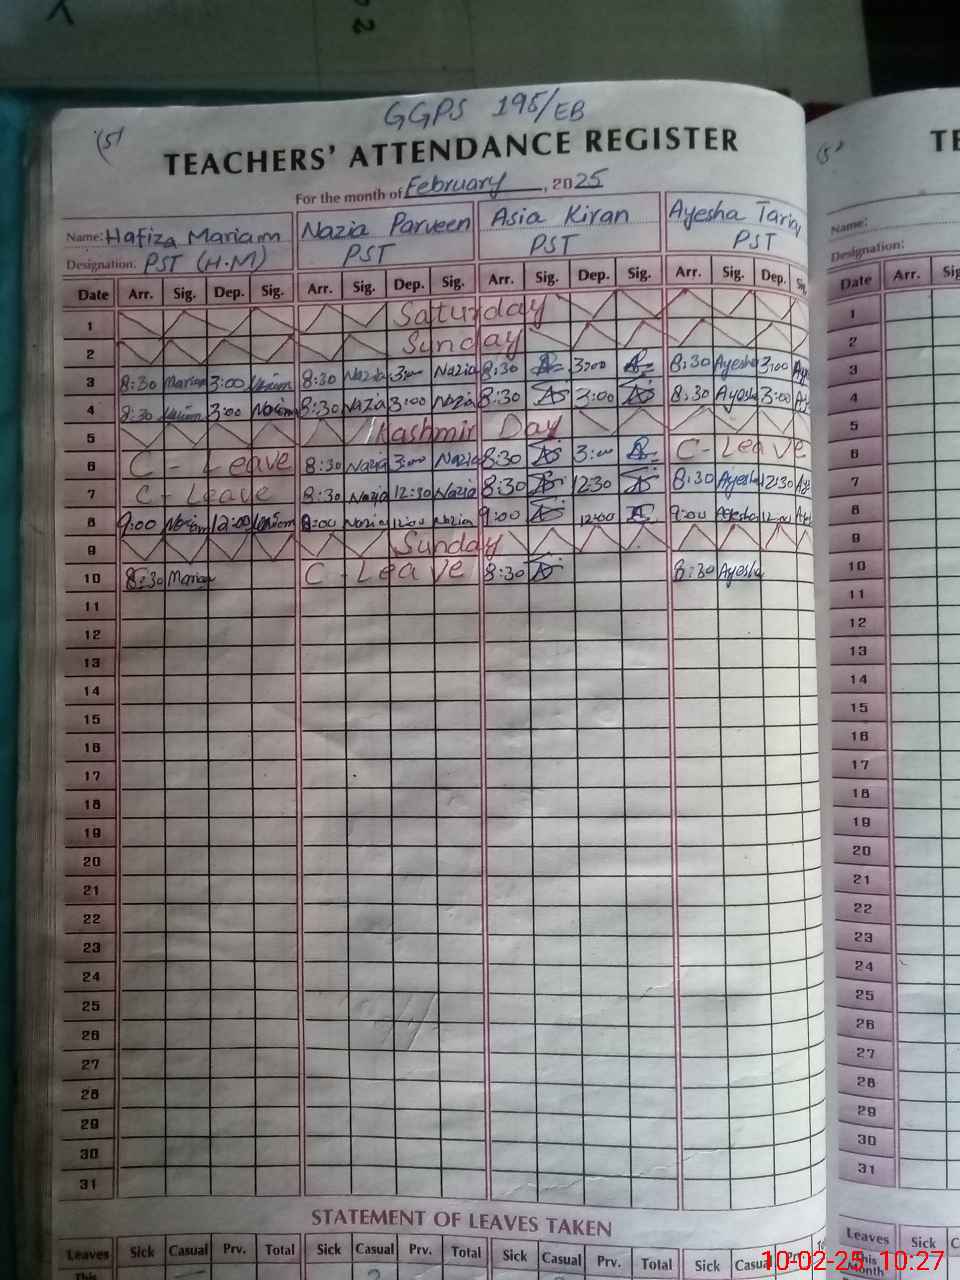 GGPS 195/EB
(5)
TEACHERS' ATTENDANCE REGISTER
For the month of February, 2025
Name: Hafiza Mariam Nazia Parveen Asia Kiran Ayesha Tariq
Designation. PST (H.M) PST PST PST
Date Arr. Sig. Dep. Sig. Arr. Sig. Dep. Sig. Arr. Sig. Dep. Sig. Arr. Sig. Dep.
1 Saturday
2 Sunday
3 8:30 Mariam 3:00 8:30 Nazia 3:00 Nazia 8:30 3:00 8:30 Ayesha 3:00
4 8:30 3:00 8:30 Nazia 3:00 Nazia 8:30 3:00 8:30 Ayesha 3:00
5 Kashmir Day
6 C - Leave 8:30 Nazia 3:00 Nazia 8:30 3:00 C - Leave
7 C - Leave 8:30 Nazia 12:30 Nazia 8:30 12:30 8:30 Ayesha 12:30
8 9:00 12:00 Nazia 12:00 Nazia 9:00 12:00 9:00 Ayesha 12:00
9 Sunday
10 8:30 Mariam C - Leave 8:30 8:30 Ayesha
11
12
13
14
15
16
17
18
19
20
21
22
23
24
25
26
27
28
29
30
31
STATEMENT OF LEAVES TAKEN
Leaves Sick Casual Prv. Total Sick Casual Prv. Total Sick Casual Prv. Total Sick Casual
This
(5)
Name:
Designation:
Date Arr.
1
2
3
4
5
6
7
8
9
10
11
12
13
14
15
16
17
18
19
20
21
22
23
24
25
26
27
28
29
30
31
Leaves Sick
This Month
10-02-25 10:27